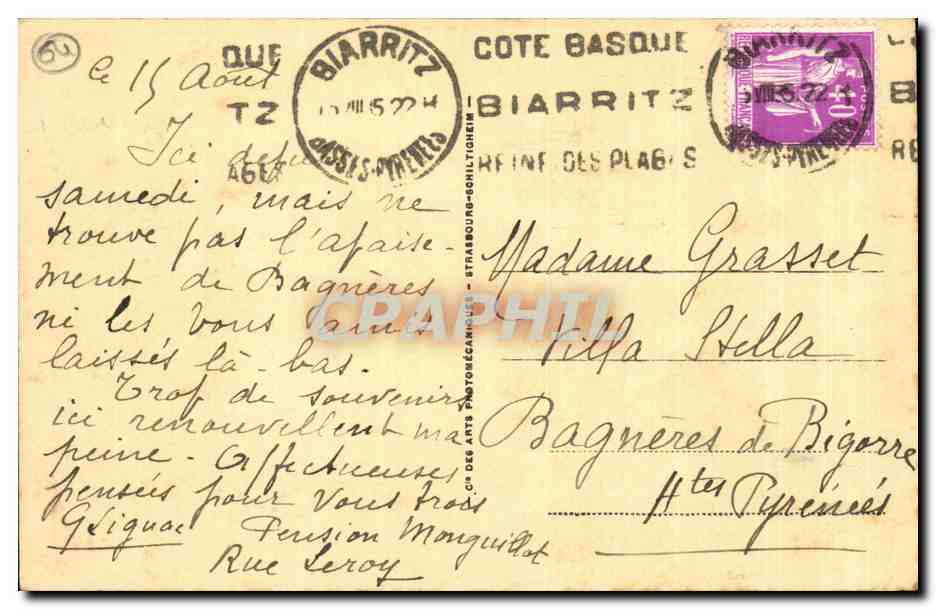 QUE
TZ
AGES
BIARRITZ
BASSES-PYRENEES
COTE BASQUE
BIARRITZ
REINE DES PLAGES
BIARRITZ
BASSES-PYRENEES
40
Le 15 Août
Ici depuis
samedi, mais ne
trouve pas l'apaise-
ment de Bagnères
ni les bons amis
laissés là-bas.
Trop de souvenirs
ici renouvellent ma
peine. Affectueuses
pensées pour vous trois
Pension Monguillot
Rue Leroy
Cie DES ARTS PHOTOMÉCANIQUES - STRASBOURG-SCHILTIGHEIM -
Madame Grasset
Villa Stella
Bagnères de Bigorre
Htes Pyrénées
CRAPHIL